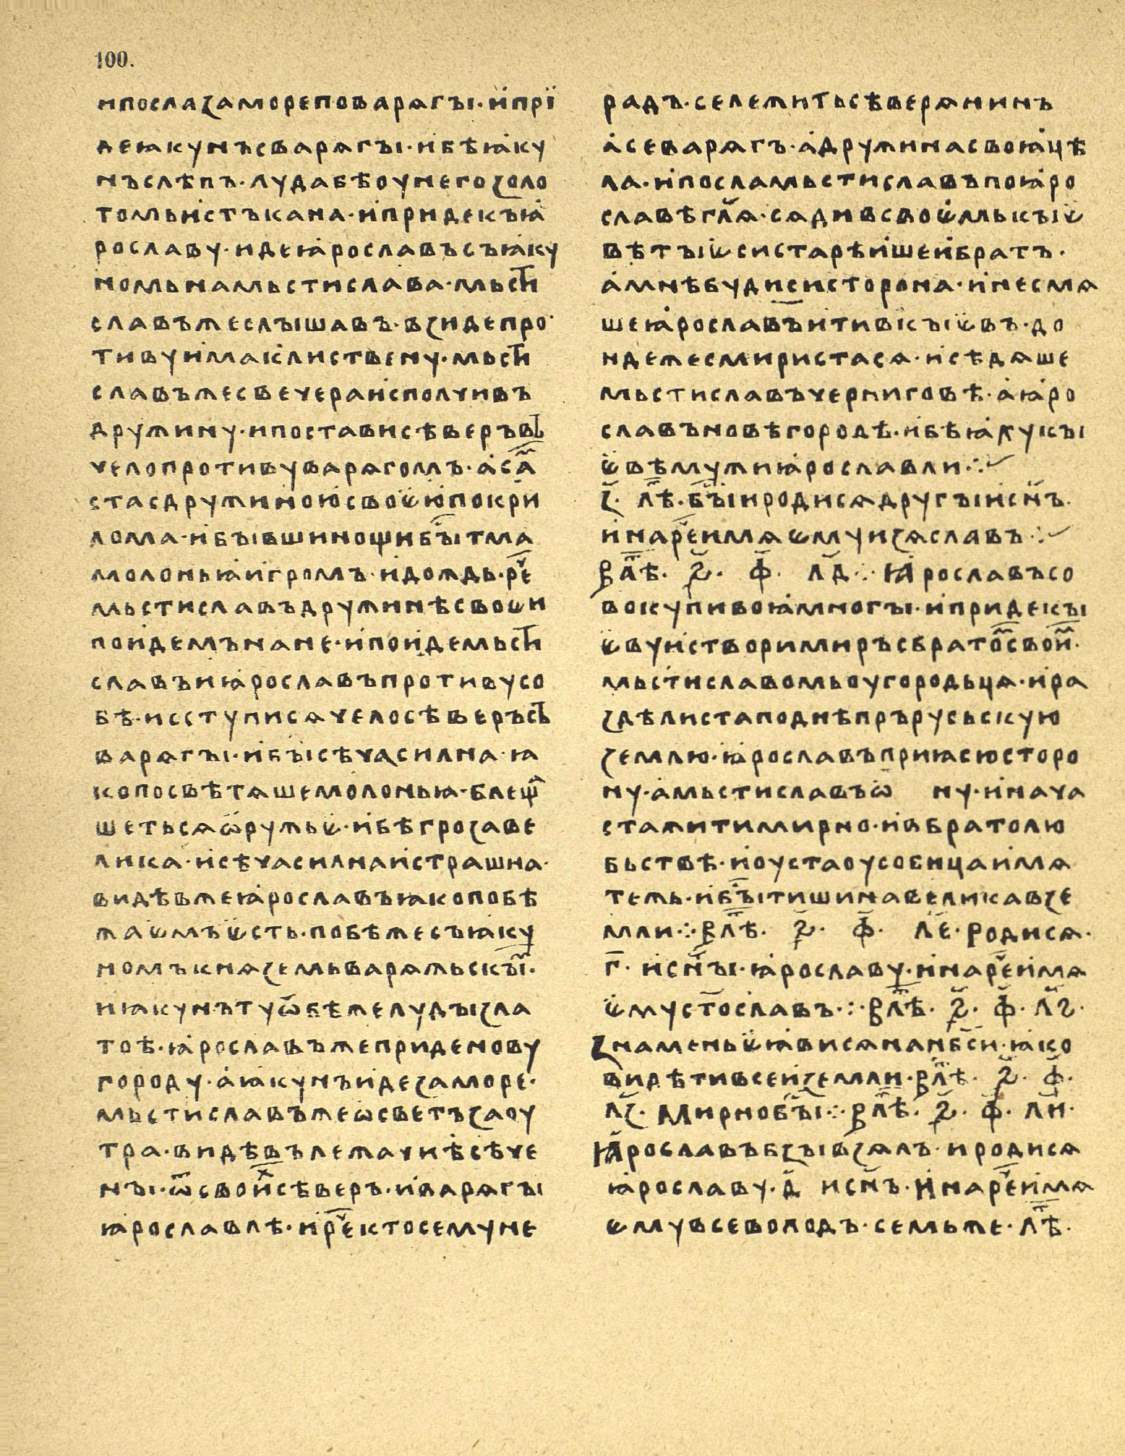 100.
ипослаꙁамореповарѧгъі·ипрї
деꙗкунъсварѧгъі·ибѣꙗку
нъслѣпъ·лудабѣоунегоꙁоло
томьистъкана·ипридекъꙗ
рославу·идеꙗрославъсъꙗку
номьнамьстислава·мьсⷭ҇ти
славъжеслышавъ·вꙁидепро
тивуимак̑лиственү·мьсти
славъжесвечераисполчивъ
дружину·ипостависѣверъвъ
челопротивуварѧгомъ·аса̑
стасдружиноюсвоѥюпокри
лома·ибъівшинощибъі̑тма
молоньꙗигромъ·идождь·рⷱ҇е
мьстиславъдружинѣсвоеи
поидемънане·ипоидемьсти
славъиꙗрославъпротивусо
бѣ·исступисѧчелосѣверъсъ
варѧгъі·ибъі̑сѣчасилна·ꙗ
копосвѣтѧшемолоньꙗ·блещⷶ
шетьсѧѡружьѥ·ибѣгроꙁаве
лика·исѣчасилнаистрашна·
видѣвжеꙗрославъꙗкопобѣ
жаемъѥсть·побѣжесъꙗку
номъкнѧꙁемьварѧжьскъі̑·
иꙗкунътуѿбѣжелудъіꙁла
тоѣ·ꙗрославъжепридеnову
городу·аꙗкунъидеꙁаморе·
мьстиславъжеѡсветъꙁаоу
тра·видѣвълежачиѣсѣче
нъі·ѿсвоихсѣверъ·иварѧгъі
ꙗрославлѣ·ирⷱ҇ектосемуне
радъ·сележитьсѣверѧнинъ
асеварѧгъ·адружинасвоꙗцѣ
ла·ипосламьстиславъпоꙗро
славѣгл҃ѧ·сѧдивсвоѥмькъіѥ
вѣтъіѥсистарѣишеибратъ·
амнѣбудисисторона·инесмѧ
шеꙗрославъитивкъіѥвъ·до
ндежесмиристасѧ·исѣдѧше
мьстиславъчерниговѣ·аꙗро
славъновѣгородѣ·ибѣꙗлукъі
ѥвѣмужиꙗрославли·:·
ꙁ҃ лⷮ҇ѣ·бъі̑иродисѧдругъіисн҃ъ·
инарⷱ҇еимѧемуиꙁѧславъ·:·
влⷮ҇ѣ·҂ѕ҃·ф҃·лд҃·:·Ꙗрославъсо
вокупивоꙗмногъі·ипридекъі
ѥвуистворимиръсбратомⷨсвоимⷨ·
мьстиславомьоугородьцѧ·ира
ꙁдѣлистаподнѣпръруськую
ꙁемлю·ꙗрославъприꙗсюсторо
ну·амьстиславъѡ ну·инача
стажитимирно·ивбратолю
бьствѣ·иоустаоусобицаимѧ
тежь·ибъі̑тишинавеликавꙁе
мли·:·влⷮ҇ѣ·҂ѕ҃·ф҃·ле҃·Родисѧ·
г҃·исн҃ъі·ꙗрославу·инарⷱ҇еимѧ
ѥмуст҃ославъ·:·влⷮ҇ѣ·҂ѕ҃·ф҃·лѕ҃·
Ꙁнаменьѥꙗвисѧнанбс҃и·ꙗко
видѣтивсеиꙁемли·влⷮ҇ѣ·҂ѕ҃·ф҃·
лꙁ҃·Мирнобъі̑·:·влⷮ҇ѣ·҂ѕ҃·ф҃·ли҃·
Ꙗрославъбꙁъівꙁѧлъ·иродисѧ
ꙗрославу·д҃ исн҃ъ·Инарⷱ҇еимѧ
емувсеволодъ·семьже·лⷮ҇ѣ·